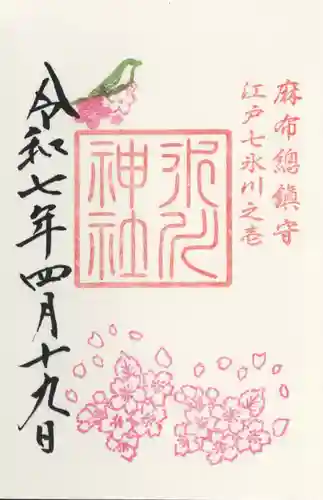 麻布總鎮守
江戸七氷川之壱
氷川神社
令和七年四月十九日